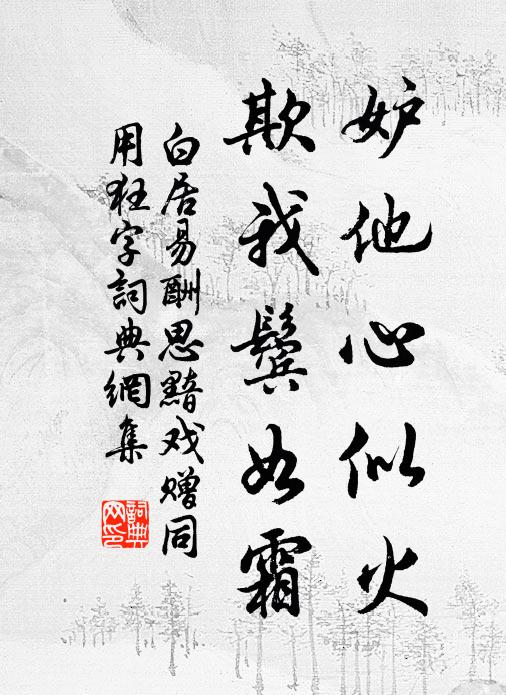 妒他心似火
欺我鬓如霜
白居易酬思黯戏赠同
用狂字詞典網集
詞典
网印